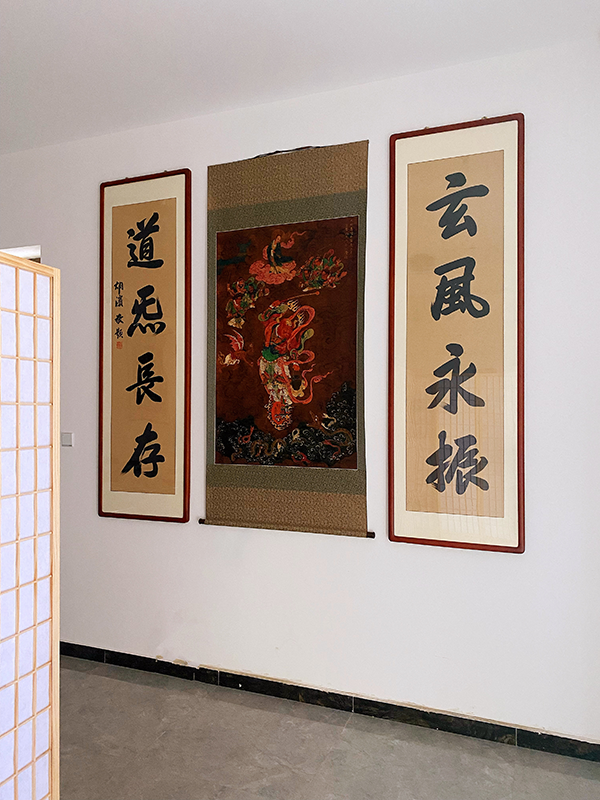 玄風永振
道炁長存